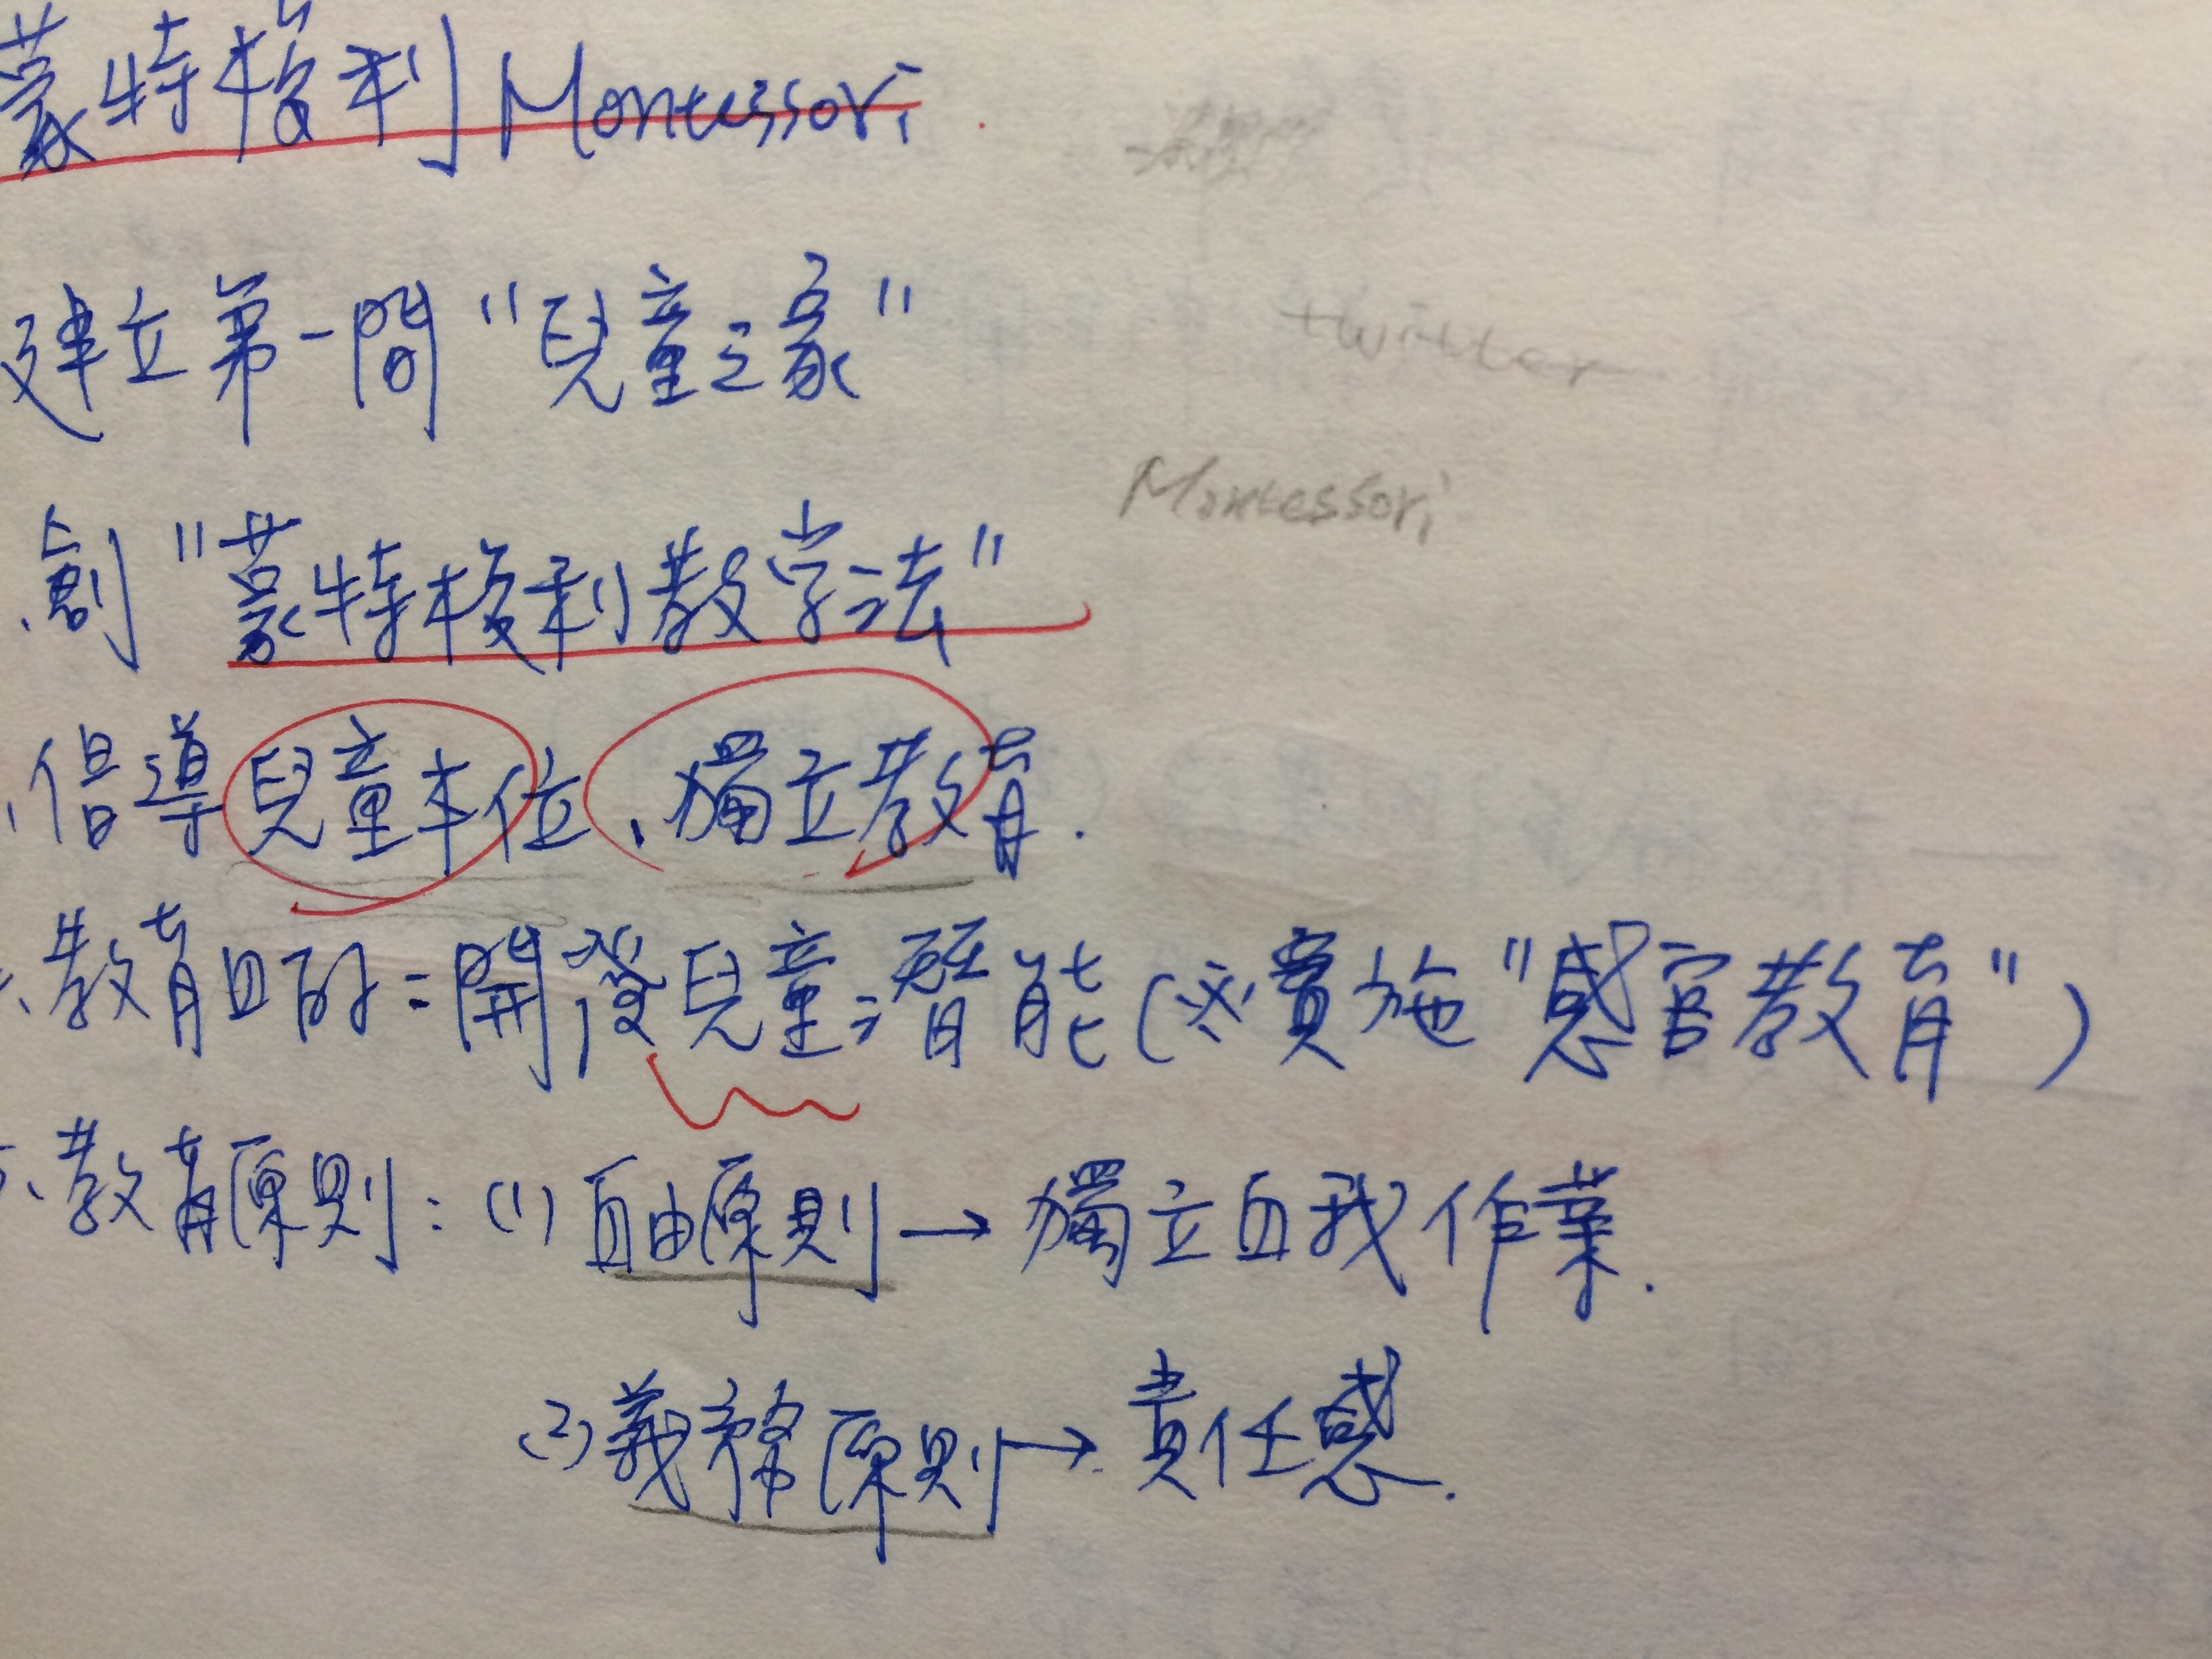 蒙特梭利 Montessori
建立第一間"兒童之家"
twitter
Montessori
創"蒙特梭利教学法"
、倡導兒童本位、獨立教育.
、教育目的:開發兒童潛能(必實施"感官教育")
、教育原則:(1)自由原則→獨立自我作業.
(2)義務原則→責任感.